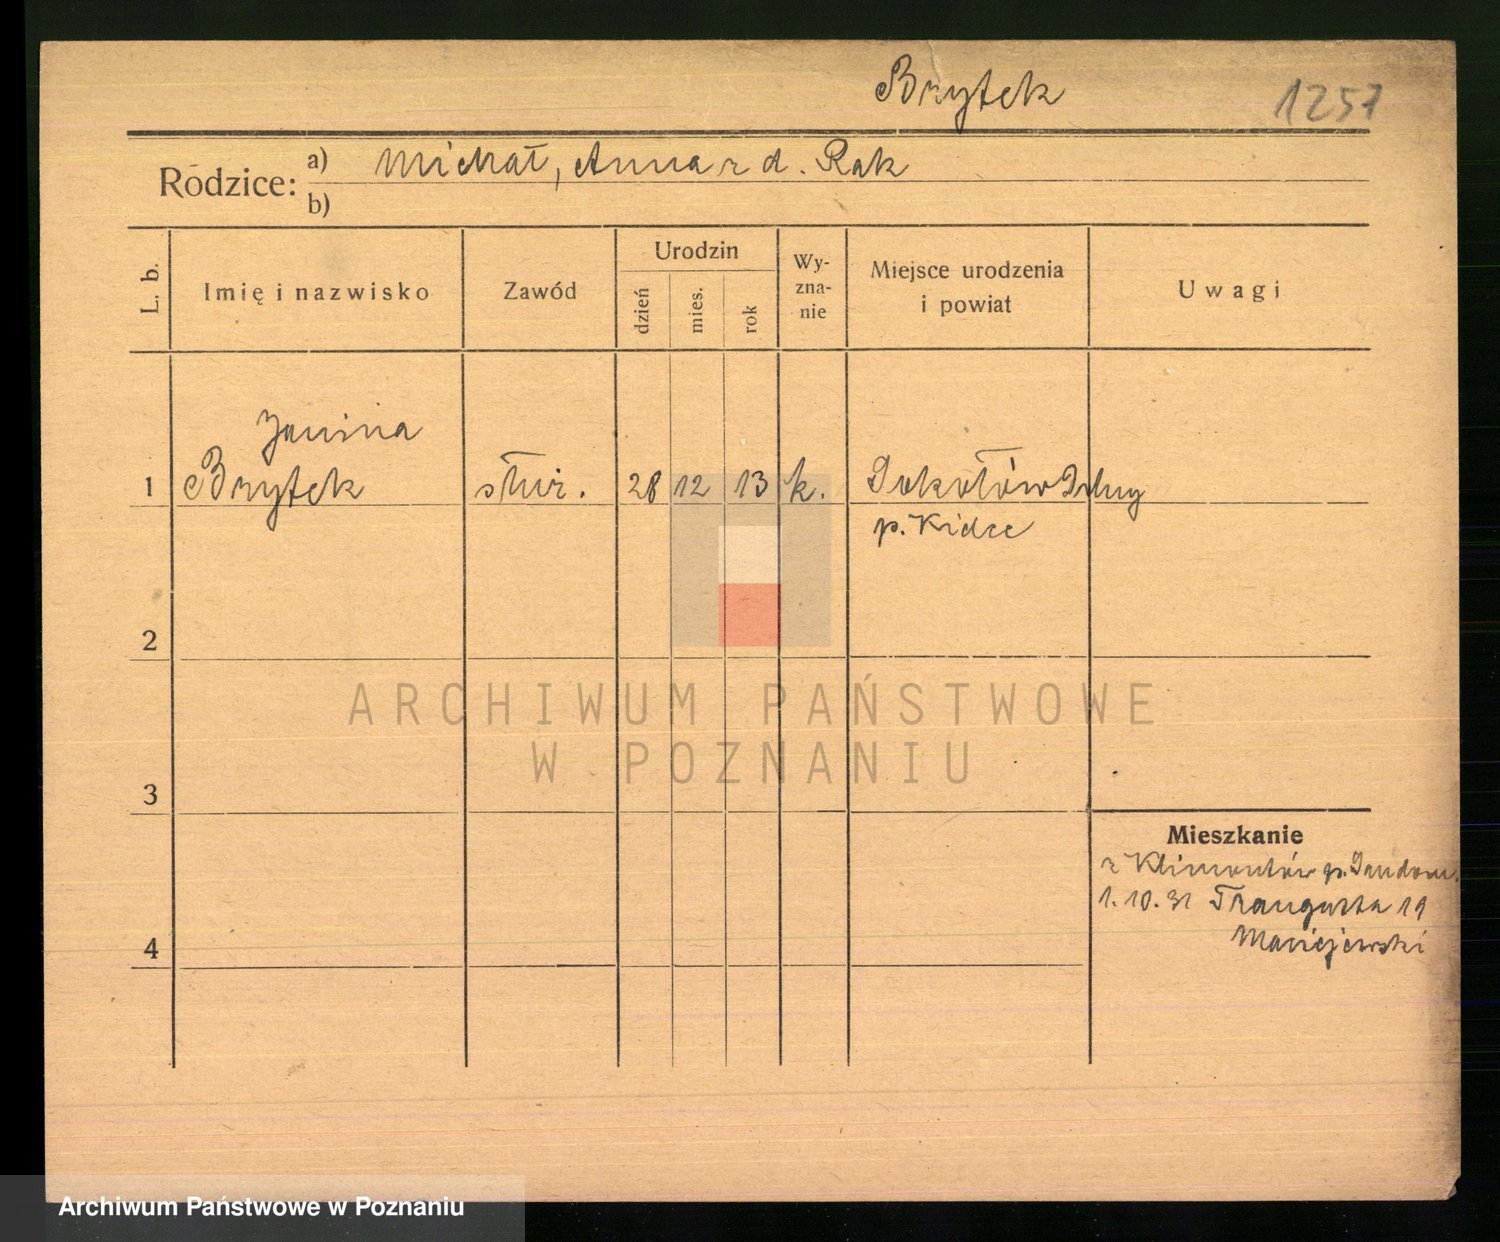 Brytek 1257
Rodzice: a) Michał, Anna z d. Rak
b)
L. b.
Imię i nazwisko
Zawód
Urodzin
dzień
mies.
rok
Wy-
zna-
nie
Miejsce urodzenia
i powiat
Uwagi
Janina
1 Brytek służ. 28 12 13 k. Sokołów Dolny
p. Kielce
2
3
4
Mieszkanie
z Klimontów p. Sandom.
1.10.31 Traugutta 19
Maciejewski
ARCHIWUM PAŃSTWOWE
W POZNANIU
Archiwum Państwowe w Poznaniu